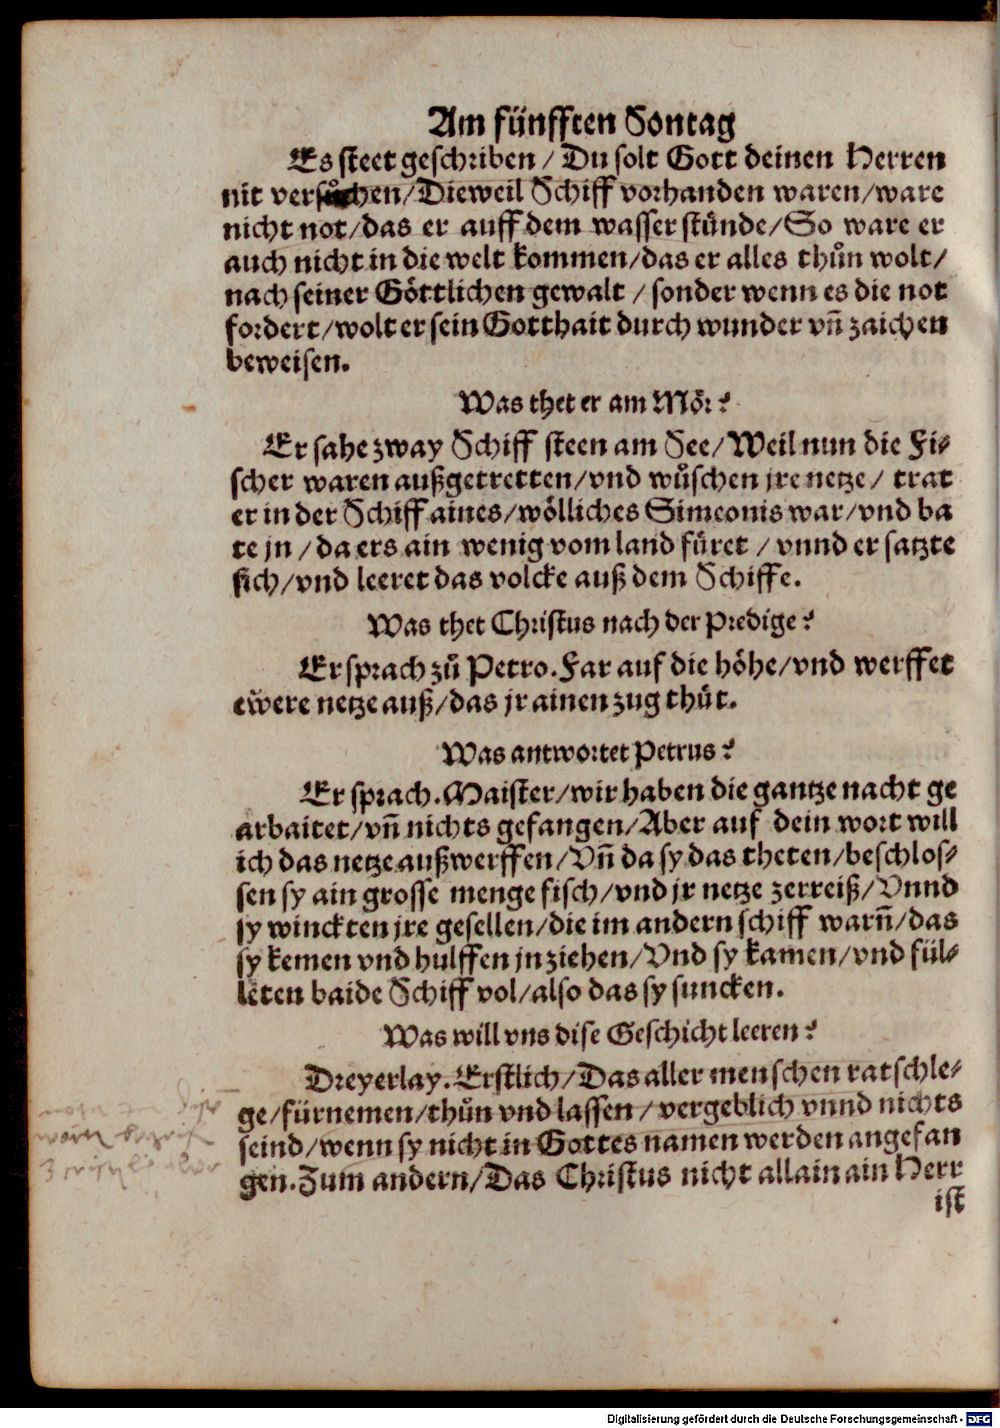 Am fünfften Sontag
Es steet geschriben / Du solt Gott deinen Herren
nit versůchen/Dieweil Schiff vorhanden waren/ware
nicht not/das er auff dem wasser stünde/So ware er
auch nicht in die welt kommen/das er alles thůn wolt/
nach seiner Göttlichen gewalt / sonder wenn es die not
fordert/wolt er sein Gotthait durch wunder vñ zaichen
beweisen.
Was thet er am Mör?
Er sahe zway Schiff steen am See/Weil nun die Fi-
scher waren außgetretten/vnd wůschen jre netze/ trat
er in der Schiff aines/wölliches Simeonis war/vnd ba
te jn / da ers ain wenig vom land füret / vnnd er satzte
sich/vnd leeret das volcke auß dem Schiffe.
Was thet Christus nach der Predige?
Er sprach zů Petro. Far auf die höhe/vnd werffet
ewere netze auß/das jr ainen zug thůt.
Was antwortet Petrus?
Er sprach. Maister/wir haben die gantze nacht ge
arbaitet/vñ nichts gefangen/Aber auf dein wort will
ich das netze außwerffen/Vñ da sy das theten/beschlos-
sen sy ain grosse menge fisch/vnd jr netze zerreiß/Vnnd
sy winckten jre gesellen/die im andern schiff warñ/das
sy kemen vnd hulffen jn ziehen/Vnd sy kamen/vnd fül-
leten baide Schiff vol/also das sy suncken.
Was will vns dise Geschicht leeren?
Dreyerlay. Erstlich/Das aller menschen ratschle-
ge/fürnemen/thůn vnd lassen / vergeblich vnnd nichts
seind/wenn sy nicht in Gottes namen werden angefan
gen. Zum andern/Das Christus nicht allain ain Herr
ist
Digitalisierung gefördert durch die Deutsche Forschungsgemeinschaft - DFG